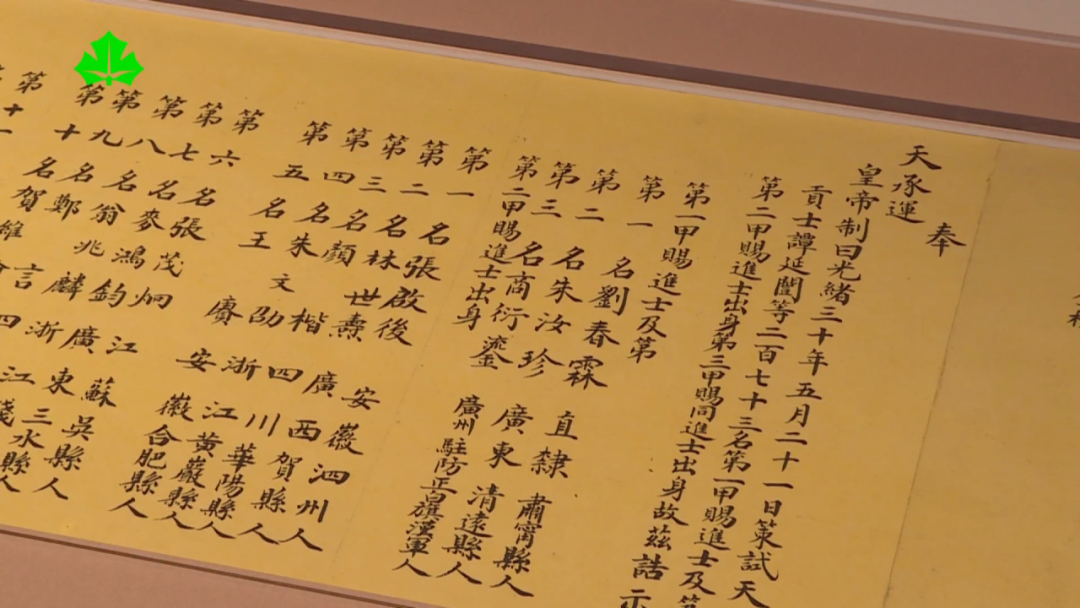 奉
天承運
皇帝制曰光緒三十年五月二十一日策試天
貢士譚延闓等二百七十三名第一甲賜進士及
第二甲賜進士出身第三甲賜同進士出身故茲誥示
第一甲賜進士及第
第一名劉春霖 直隸肅寧縣人
第二名朱汝珍 廣東清遠縣人
第三名商衍鎏 廣州駐防正白旗漢軍人
第二甲賜進士出身
第一名張啟後 安徽泗州人
第二名林世燾 廣西賀縣人
第三名顏楷 四川華陽縣人
第四名朱文劭 浙江黃巖縣人
第五名王賡 安徽合肥縣人
第六名張茂炯 江蘇吳縣人
第七名麥鴻鈞 廣東三水縣人
第八名翁兆麟 浙江
第九名鄭言 四
第十名賀維
第十一